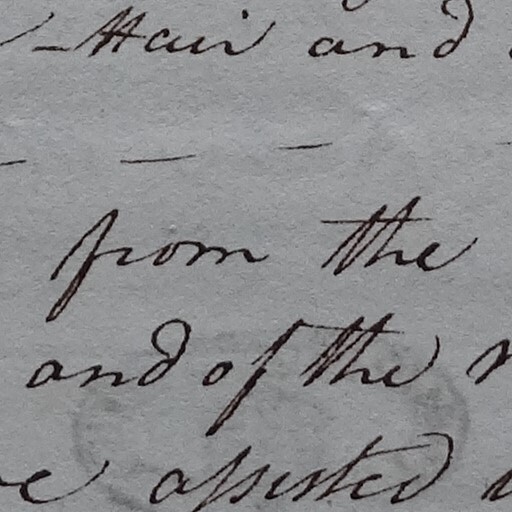 -Hair and
from the
and of the
assisted